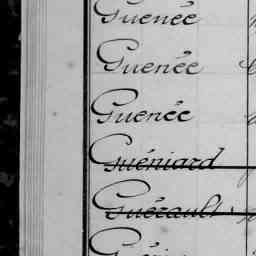 Guenée
Guenée
Guenée
Guéniard
Guérault